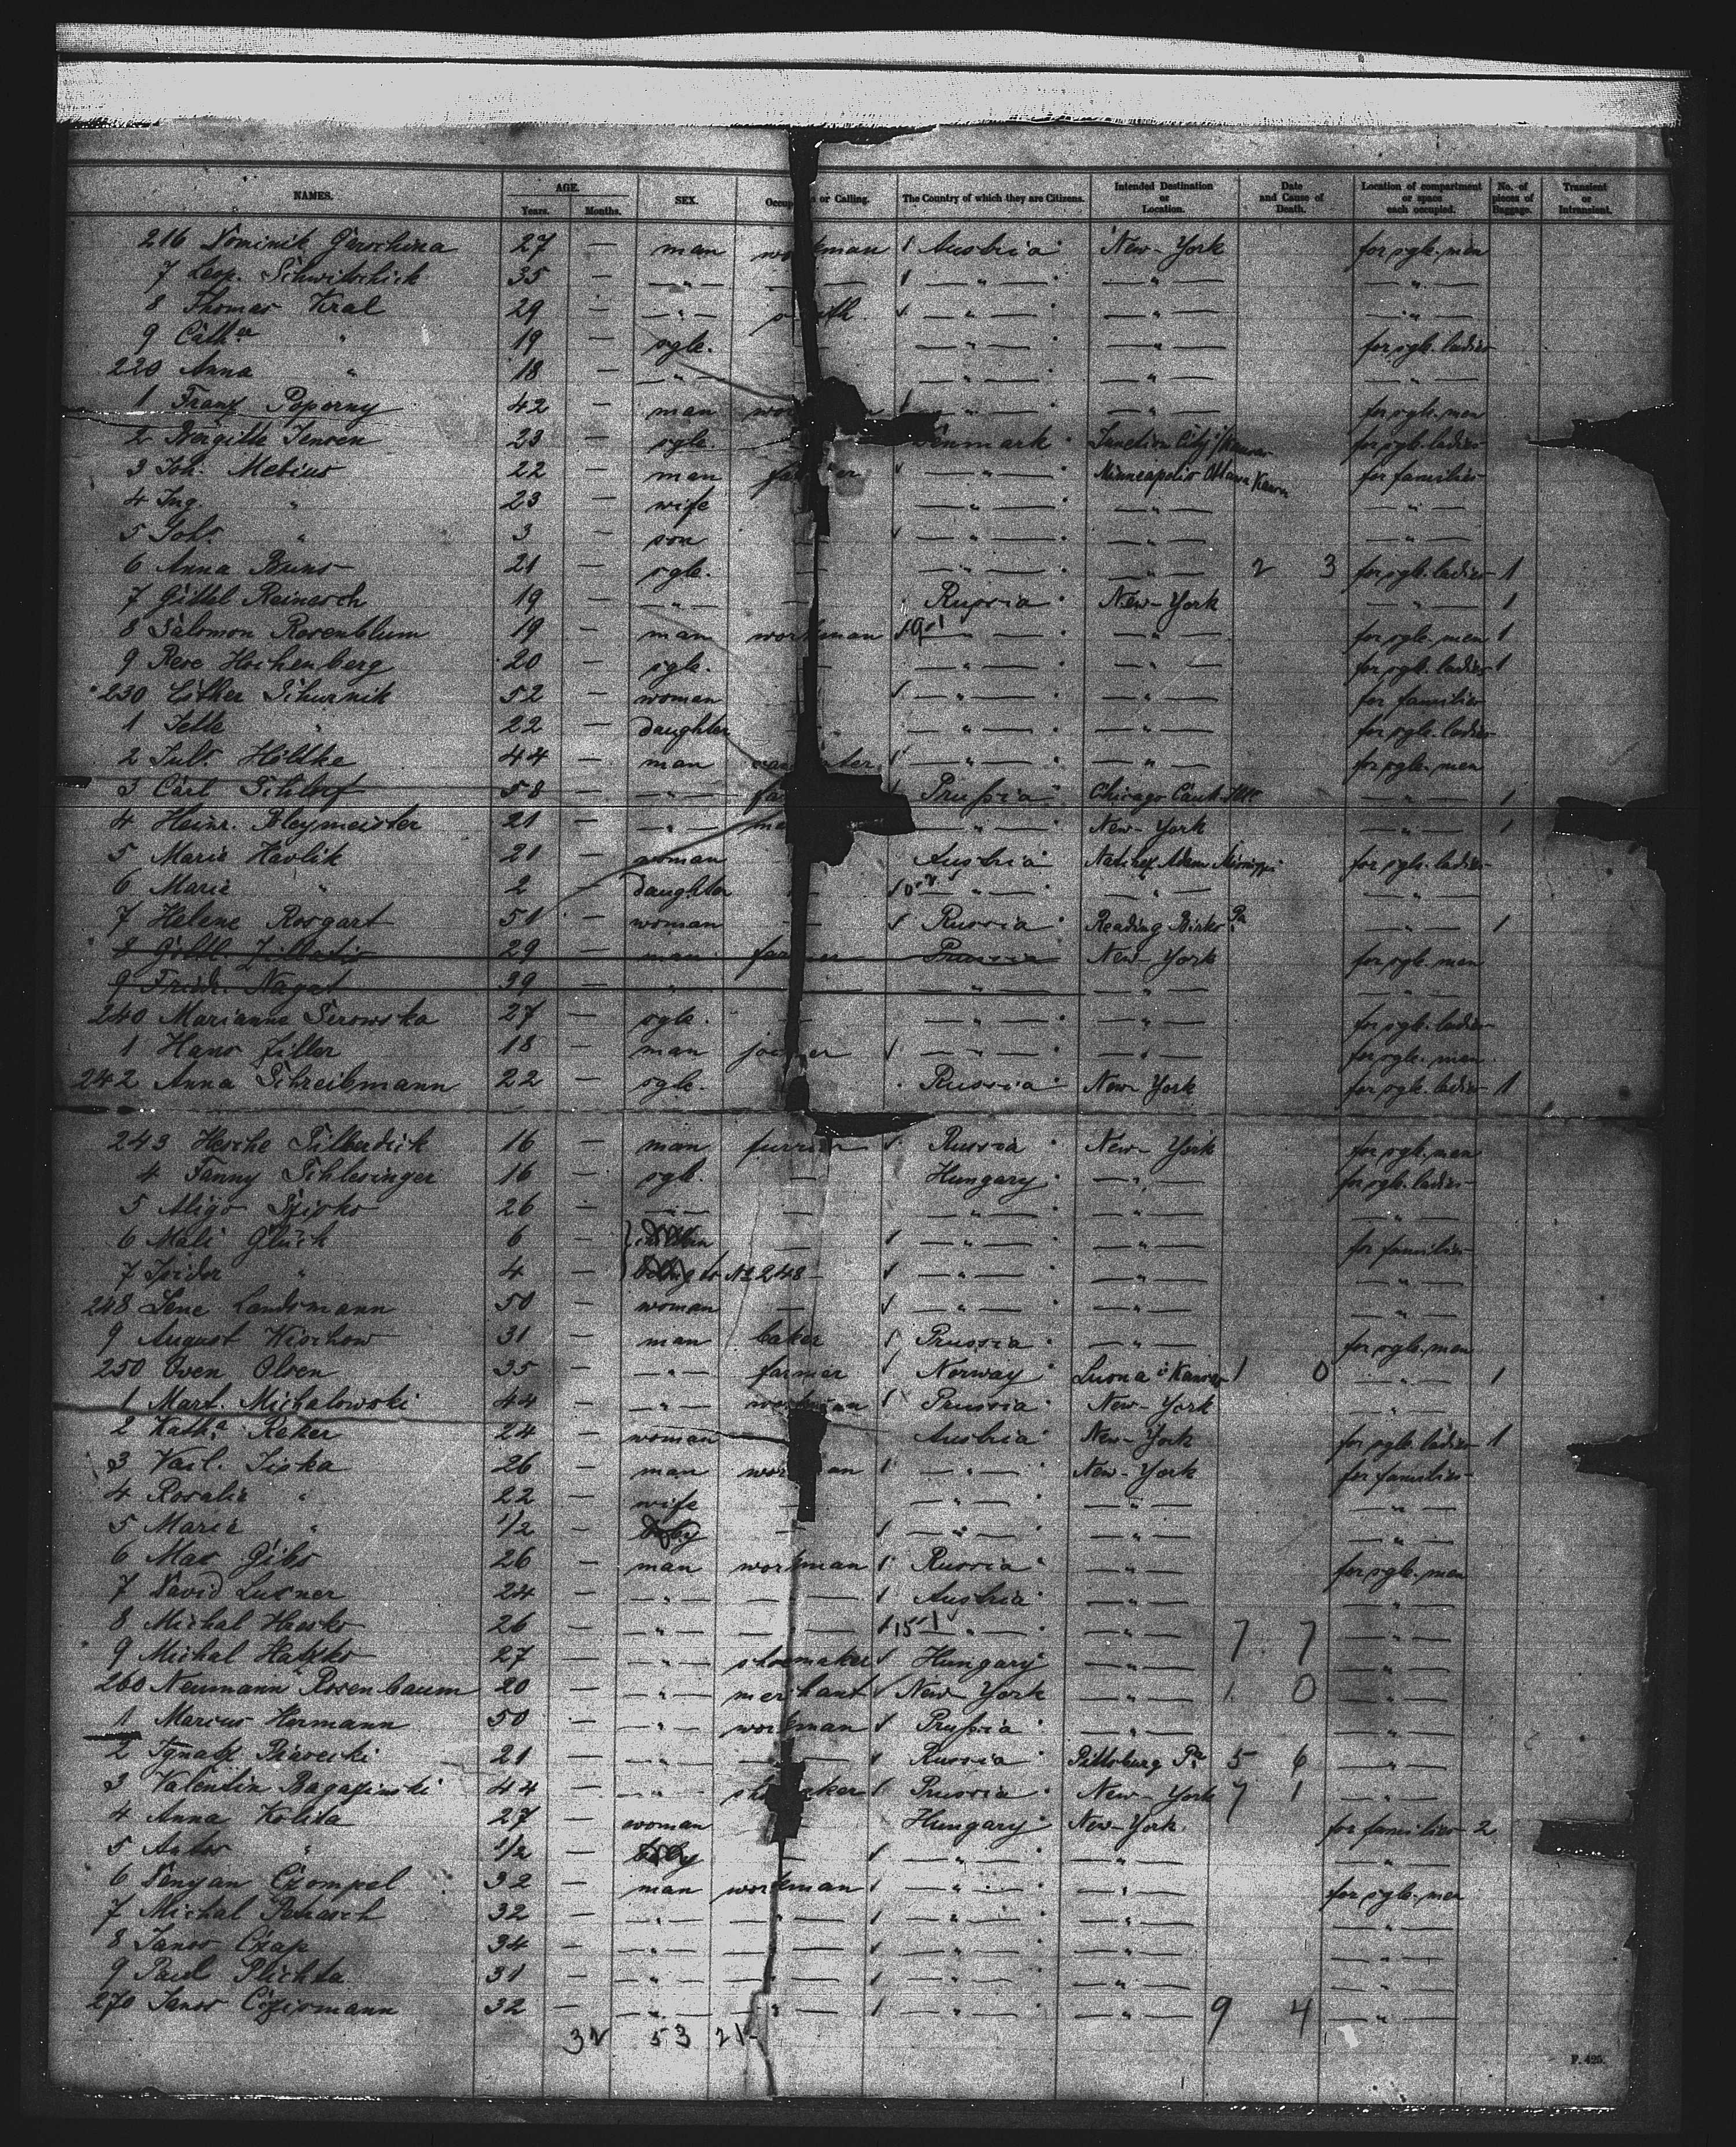 NAMES. AGE. Years. Months. SEX. Occup or Calling. The Country of which they are Citizens. Intended Destination or Location. Date and Cause of Death. Location of compartment or space each occupied. No. of pieces of Baggage. Transient or Intransient.
216 Dominik 27 — man workman Austria New-York for sgle. men
7 Leop. 35 — —"— — —"— —"— —"—
8 Thomas Kral 29 — —"— smith —"— —"— —"—
9 Cath. " 19 — sgle. —"— —"— for sgle. ladies
220 Anna " 18 — —"— —"— —"— —"—
1 Franz Poporny 42 — man —"— —"— for sgle. men
2 Bergitte Jensen 23 — sgle. Denmark Junction City for sgle. ladies
3 Joh. Mebius 22 — man farmer —"— Minneapolis for families
4 Ing. " 23 — wife —"— —"— —"—
5 Joh. " 3 — son —"— —"— —"—
6 Anna Buns 21 — sgle. — —"— —"— 2 3 for sgle. ladies 1
7 Gittel Reinesch 19 — —"— — Russia New-York —"— 1
8 Salomon Rosenblum 19 — man workman —"— —"— for sgle. men 1
9 Rese Hochenberg 20 — sgle. — —"— —"— for sgle. ladies 1
230 Esther Schurnik 52 — woman —"— —"— for families
1 Jette " 22 — daughter —"— —"— for sgle. ladies
2 Jul. Höltke 44 — man carpenter —"— —"— for sgle. men
3 Carl 58 — —"— Prussia Chicago —"— 1
4 Heinr. Bleymeister 21 — —"— —"— New-York —"— 1
5 Marie Havlik 21 — woman Austria for sgle. ladies
6 Marie " 2 — daughter —"— —"— —"—
7 Helene Rosgart 51 — woman — Russia Reading Pa —"— 1
8 29 — man farmer Prussia New-York for sgle. men
9 Friedr. Nagat 39 — " —"— —"—
240 Marianne Serowska 27 — sgle. —"— —"— for sgle. ladies
1 Hans Ziller 18 — man joiner —"— —"— for sgle. men
242 Anna Schreibmann 22 — sgle. Russia New-York for sgle. ladies 1
243 Hesche Silberdick 16 — man furrier Russia New-York for sgle. men
4 Fanny Schlesinger 16 — sgle. — Hungary —"— for sgle. ladies
5 26 — —"— — —"— —"— —"—
6 Mali Glück 6 — children — —"— —"— for families
7 Isidor " 4 — belong to No 248 —"— —"— —"—
248 Lene Landsmann 50 — woman — —"— —"— —"—
9 August Wischow 31 — man baker Prussia —"— for sgle. men
250 Oven Olsen 35 — —"— farmer Norway Kansas 1 0 —"— 1
1 Mart. Michalowski 44 — —"— workman Prussia New-York —"—
2 Katha Raker 24 — woman — Austria New-York for sgle. ladies 1
3 26 — man workman —"— New-York for families
4 Rosalie " 22 — wife — —"— —"— —"—
5 Marie " 1/2 — baby — —"— —"— —"—
6 Max Gibs 26 — man workman Russia —"— for sgle. men
7 David Luxner 24 — —"— — Austria —"— —"—
8 Michal Hresko 26 — —"— — 15-1 —"— —"— 7 7 —"—
9 Michal Hatzko 27 — —"— shoemaker Hungary —"— —"—
260 Neumann Rosenbaum 20 — —"— merchant New-York —"— 1 0 —"—
1 Marcus Hermann 50 — —"— workman Prussia —"— —"—
2 Ignatz 21 — —"— — Russia Pittsburg Pa 5 6 —"—
3 Valentin Bagazinski 44 — —"— shoemaker Prussia New-York 7 1 —"—
4 Anna Kolita 27 — woman — Hungary New-York for families 2
5 " 1/2 — baby — —"— —"— —"—
6 Czompel 32 — man workman —"— —"— for sgle. men
7 Michal 32 — —"— —"— —"— —"— —"—
8 Janos Czap 34 — —"— — —"— —"— —"—
9 Paul Plichta 31 — —"— — —"— —"— —"—
270 Janos 32 — —"— —"— —"— —"— 9 4 —"—
32 53 21
F. 425.